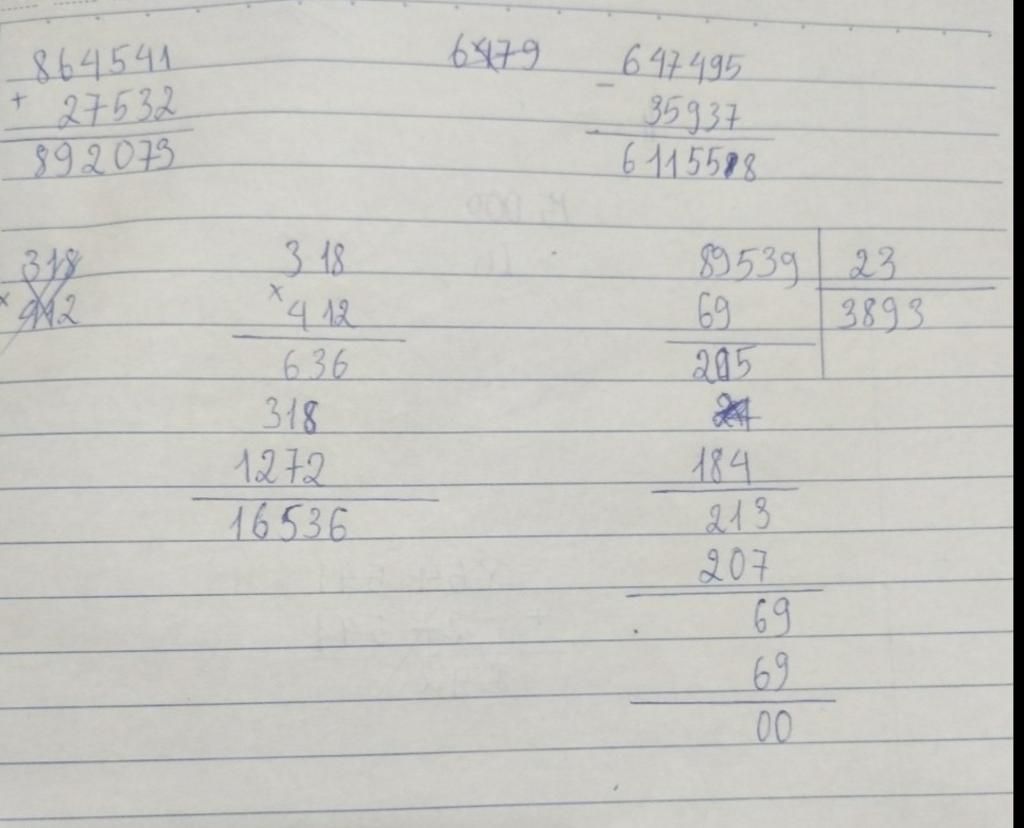 864541
+ 27532
892073
6479
- 647495
35937
611558
318
x 412
318
x 412
636
318
1272
16536
89539 | 23
69 | 3893
205
184
213
207
69
69
00